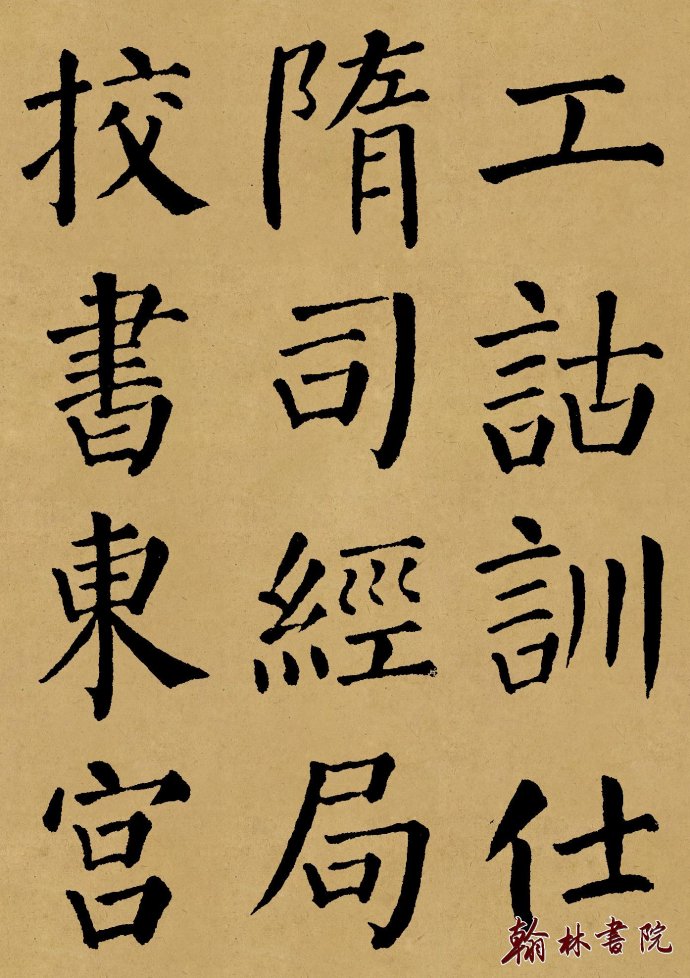 工詁訓仕
隋司經局
挍書東宮
翰林書院